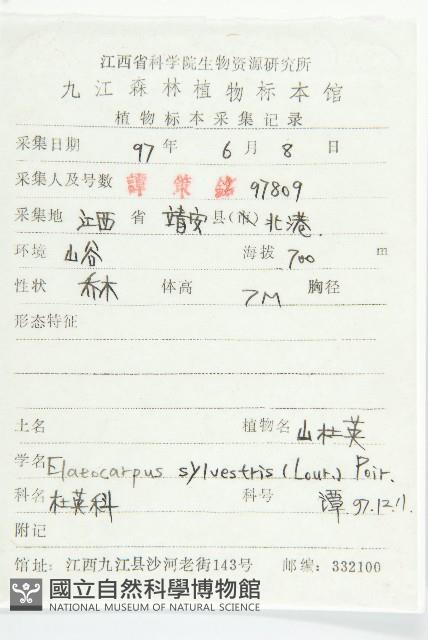 江西省科学院生物资源研究所
九江森林植物标本馆
植物标本采集记录
采集日期 97 年 6 月 8 日
采集人及号数 譚策銘 97809
采集地 江西 省 靖安 县(市) 北港.
环境 山谷 海拔 700 m
性状 乔木 体高 7M 胸径
形态特征
土名 植物名 山杜英
学名 Elaeocarpus sylvestris (Lour.) Poir.
科名 杜英科 科号 譚 97.12.11.
附记
馆址: 江西九江县沙河老街143号 邮编: 332100
國立自然科學博物館
NATIONAL MUSEUM OF NATURAL SCIENCE